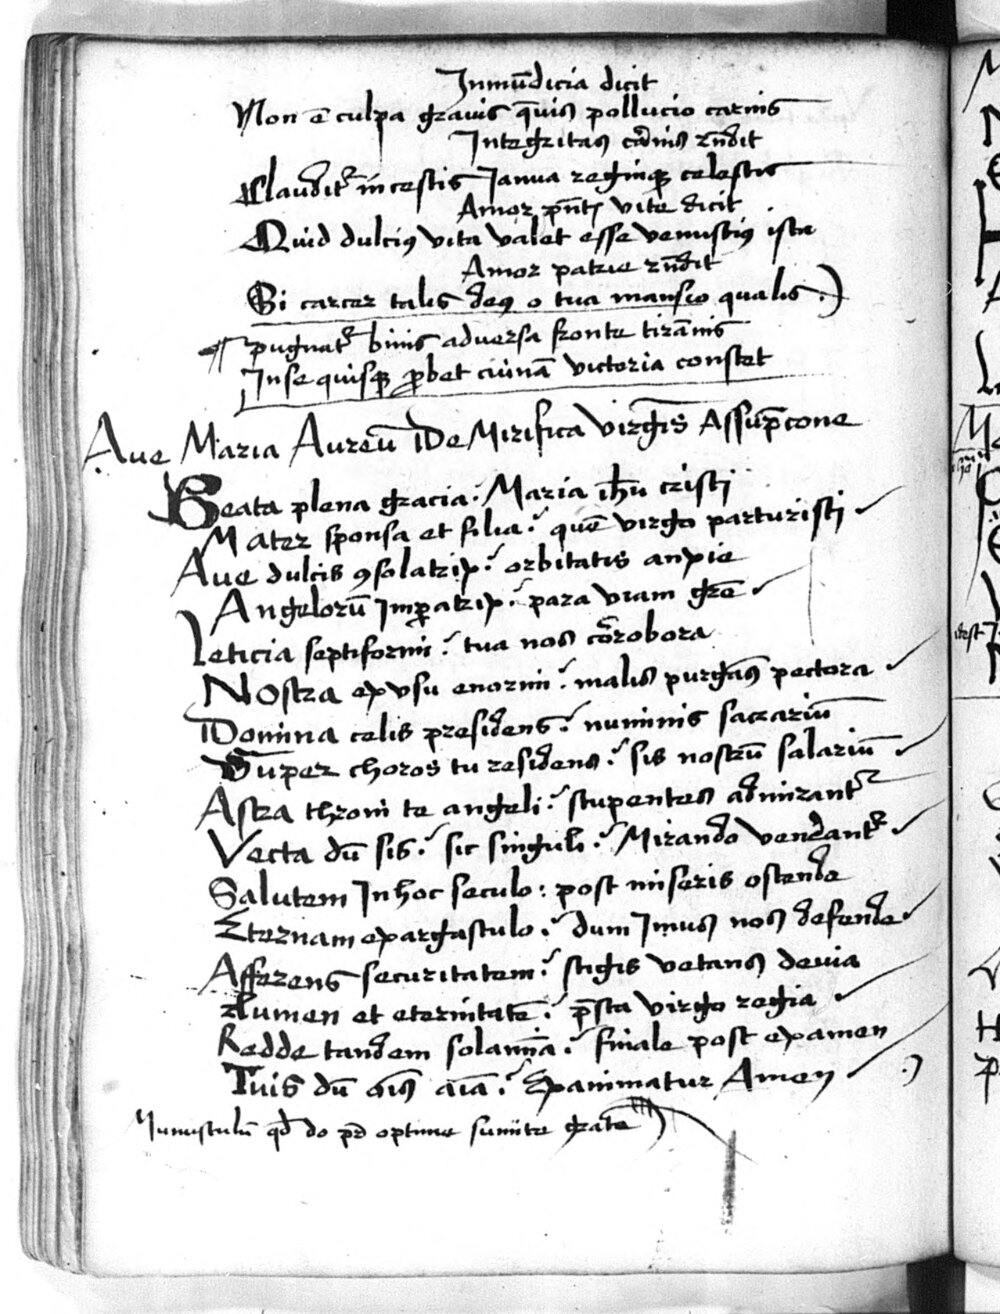 Inmūdicia dicit
Non ē culpa gravis q̄vis pollucio carnis
Integritas cārnis rn̄dit
Claudit᷑ incestis Ianua regniq; celestis
Amor pn̄tis vite dicit
Quid dulcius vita valet esse venustius ista
Amor patrie rn̄dit
Si carcer talis deus o tua mansio qualis
pugnat᷑ binis adversa fronte tirānis
In se quisq; probet cui nā victoria constet
Ave Maria Aureū De Mirifica virgīs Assūpcone
Beata plena gracia Maria ihū cristi
Mater sponsa et filia quē virgo parturisti
Ave dulcis ꝯsolatrix orbitatis anxie
Angelorū Imꝑatrix para viam grē
Leticia septiformi tua nos cōrobora
Nostra ex vsu enormi malis purgās pectora
Domina celis presidens numinis sacrariū
Super choros tu residens sis nostrū salariū
Astra throni te angeli stupentes admirant᷑
Vecta dū sis sic singuli Mirando venerant᷑
Salutem In hoc seculo : post miseris ostende
Eternam ex argastulo dum Imus nos defende
Afferens securitatem stigis vetans devia
Lumen et eternitatē p̄sta virgo regia
Redde tandem solamīa finale post examen
Tuis dū aīa Expanimatur Amen
Munusculū qd do optime sumite grate